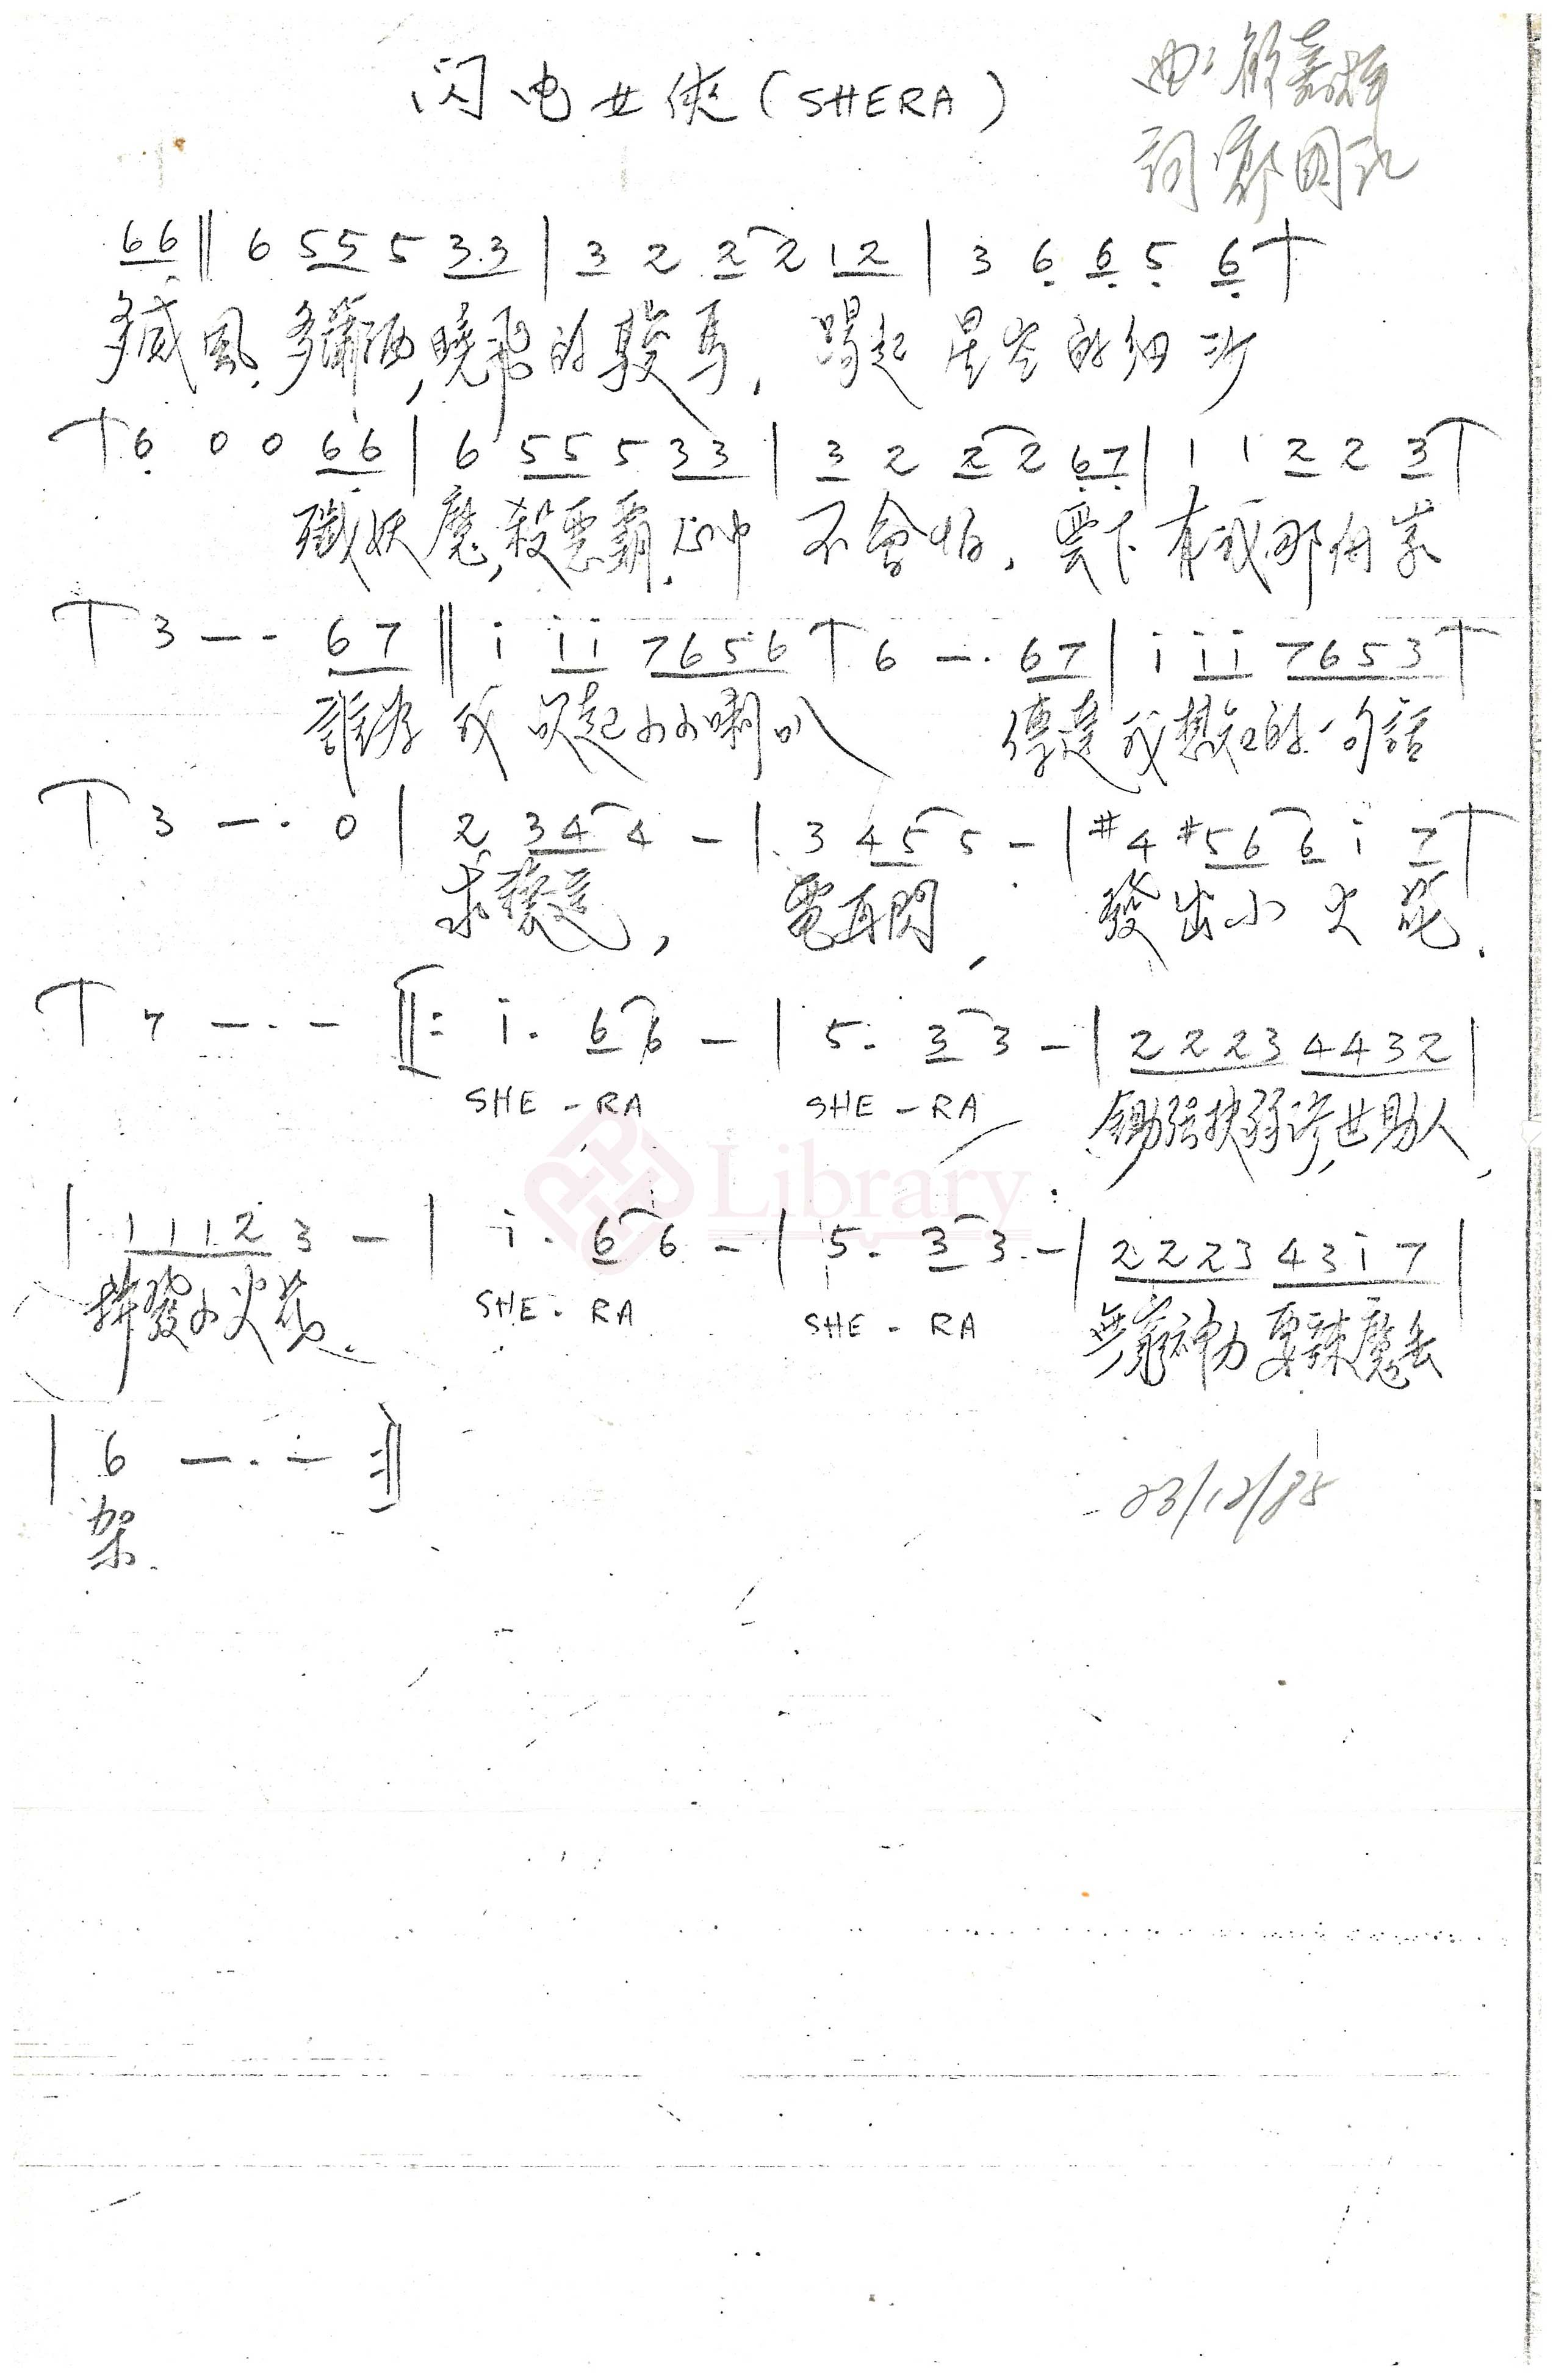 闪电女俠(SHERA)
曲:顧嘉煇
詞 鄭国江
66 || 6 55 5 33 | 3 2 2 2 12 | 3 6 6 5 6
多威風,多瀟洒,曉飛的駿馬,踢起星空的細沙
6 0 0 66 | 6 55 5 33 | 3 2 2 2 67 | 1 1 2 2 3
殲妖魔,殺惡霸,心中不會怕,天下有我那個家
3 - - 67 || i ii 7656 6 - - 67 | i ii 7653
誰為我吹起小小喇叭 傳達我想知的一句話
3 - - 0 | 2 34 4 - | 3 45 5 - | #4 #56 6 i 7
求發達, 電再閃, 發出小火花.
7 - - - ||: i. 6 6 - | 5. 3 3 - | 2223 4432 |
SHE - RA SHE - RA 鋤強扶弱,濟世助人,
| 1112 3 - | i. 6 6 - | 5. 3 3 - | 2223 43i7 |
拼發小火花. SHE - RA SHE - RA 無窮神力 要辣魔去
| 6 - - - :||
架.
23/12/85
Library